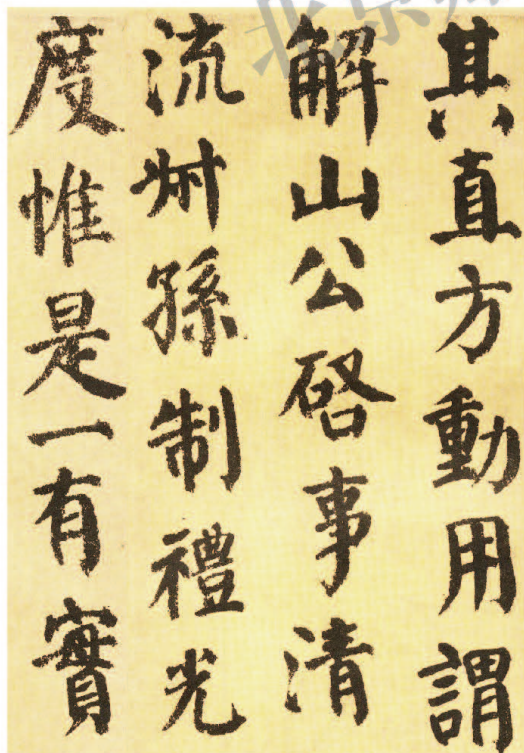 其直方動用謂
解山公啓事清
流叔孫制禮光
度惟是一有實
北京